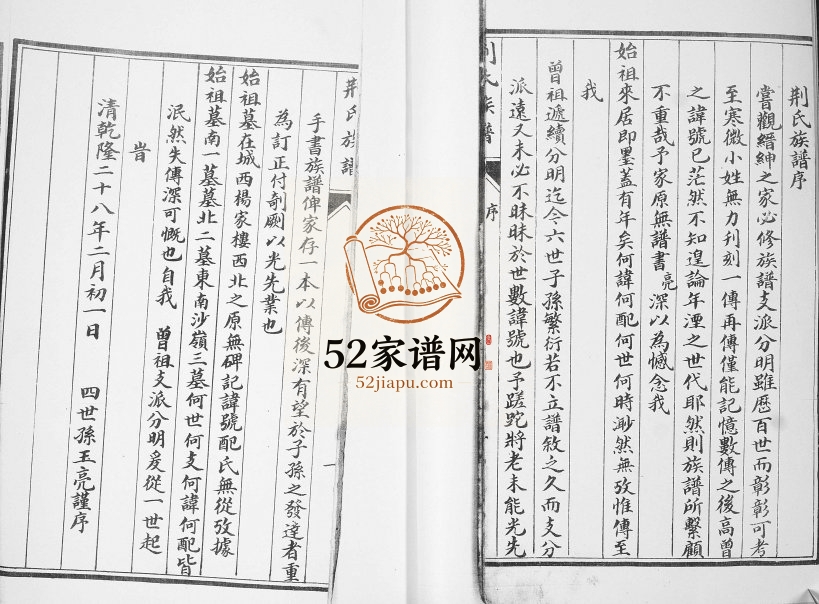 荆氏族譜序
嘗觀縉紳之家必修族譜支派分明雖歷百世而彰彰可考
至寒微小姓無力刊刻一傳再傳僅能記憶數傳之後高曾
之諱號已茫然不知遑論年湮之世代耶然則族譜所繫顧
不重哉予家原無譜書亮深以為憾念我
始祖來居即墨蓋有年矣何諱何配何世何時渺然無攷惟傳至
我
曾祖遞續分明迄今六世子孫繁衍若不立譜敘之久而支分
派遠又未必不昧昧於世數諱號也予蹉跎將老未能光先
荆氏族譜
序
荆氏族譜
手書族譜俾家存一本以傳後深有望於子孫之發達者重
為訂正付剞劂以光先業也
始祖墓在城西楊家樓西北之原無碑記諱號配氏無從攷據
始祖墓南一墓墓北二墓東南沙嶺三墓何世何支何諱何配皆
泯然失傳深可慨也自我 曾祖支派分明爰從一世起
旹
清乾隆二十八年二月初一日 四世孫王亮謹序
52家谱网
52jiapu.com